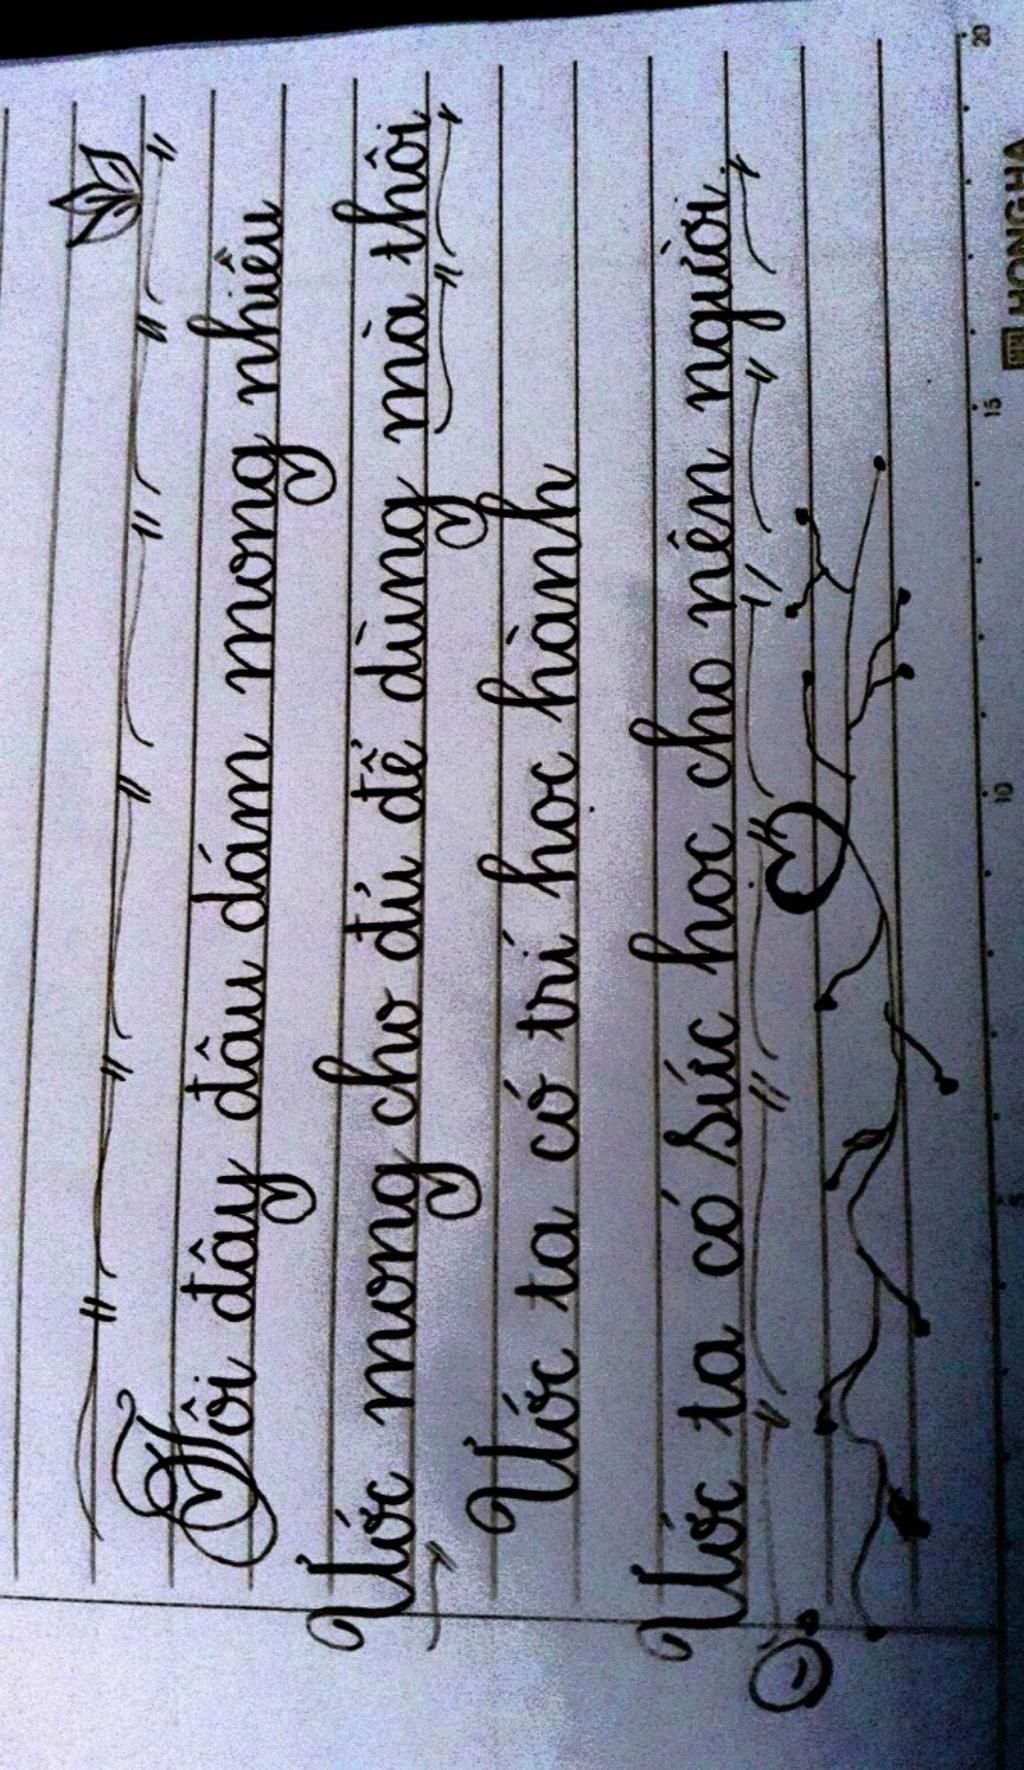 Tôi đây đâu dám mong nhiều
Ước mong cho đủ để dùng mà thôi
Ước ta có trí học hành
Ước ta có sức học cho nên người.
5
10
15
20
HONGHA